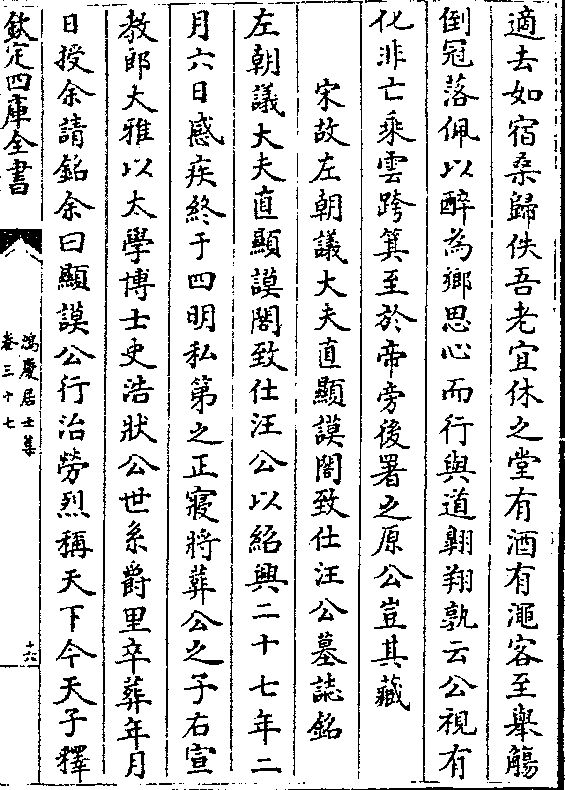 適去如宿桑歸佚吾老宜休之堂有酒有澠客至舉觴
倒冠落佩以醉為鄉思心而行與道翺翔孰云公視有
化非亡乘雲跨箕至於帝旁後署之原公豈其藏
宋故左朝議大夫直顯謨閣致仕汪公墓誌銘
左朝議大夫直顯謨閣致仕汪公以紹興二十七年二
月六日感疾終于四明私第之正寢將葬公之子右宣
教郎大雅以太學博士史浩狀公世系爵里卒葬年月
日授余請銘余曰顯謨公行治勞烈稱天下今天子擇
欽定四庫全書
鴻慶居士集
卷三十七
十六